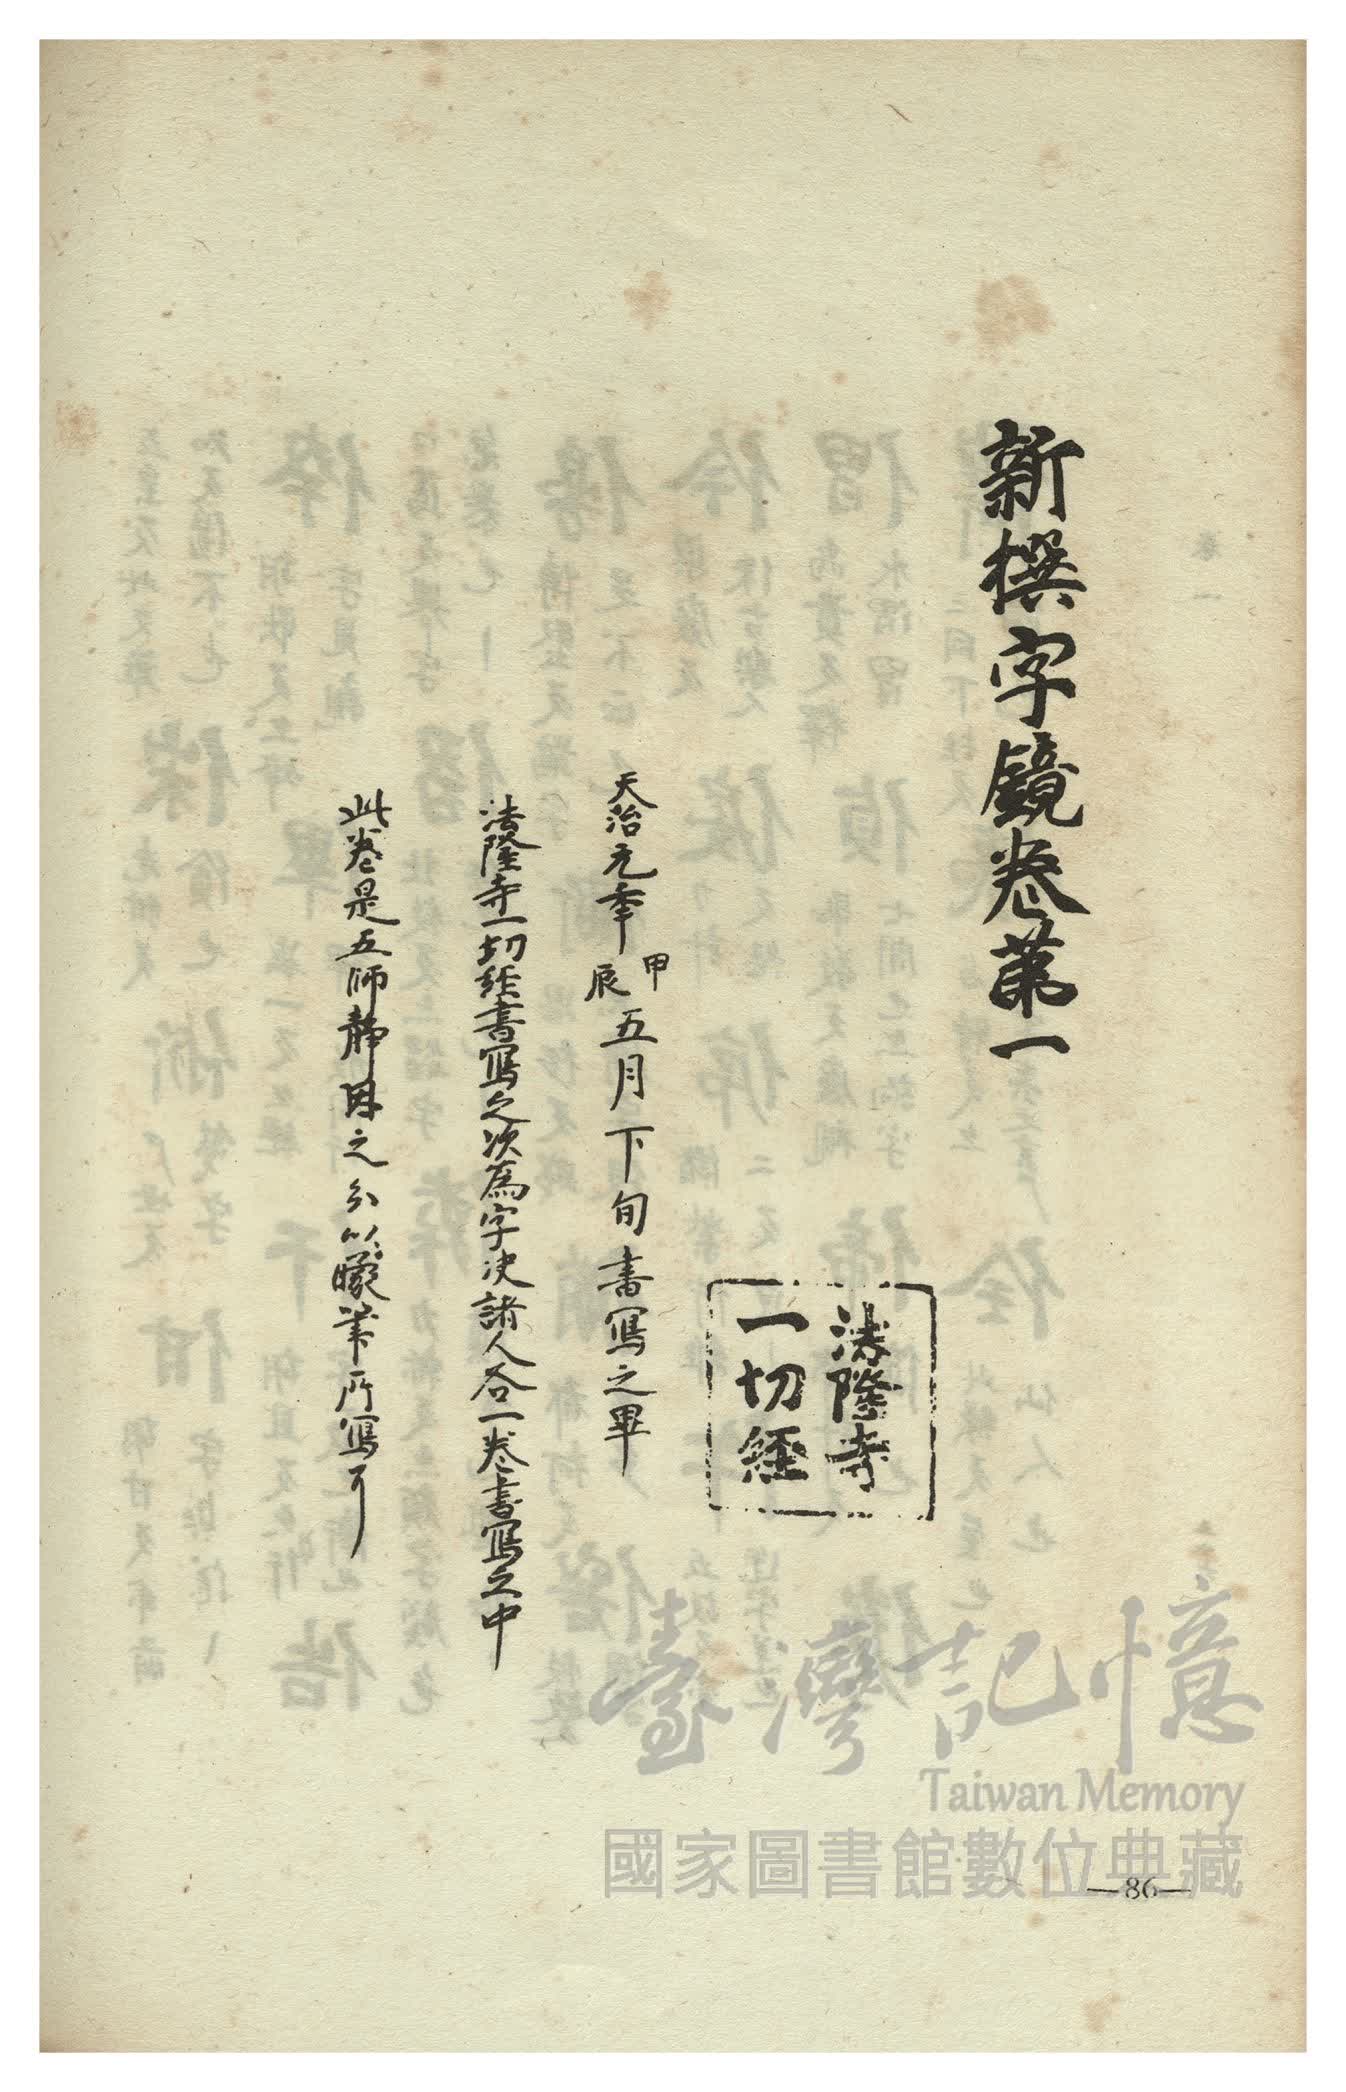 新撰字鏡卷第一
法隆寺
一切經
天治元年甲辰五月下旬書寫之畢
法隆寺一切經書寫之次為字决諸人各一卷書寫之中
此卷是五師静因之分以矇筆所寫了
臺灣記憶
Taiwan Memory
國家圖書館數位典藏
—86—